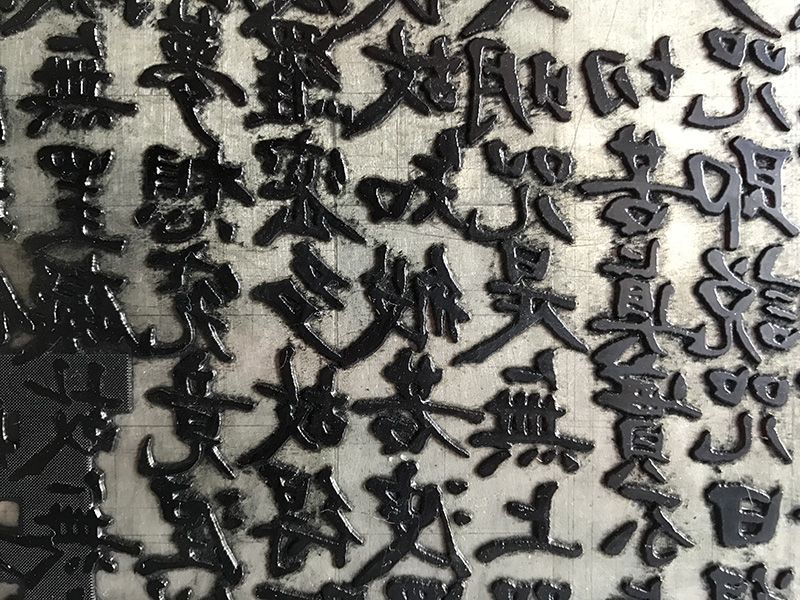 無罣礙故無
夢想究竟涅
羅蜜多故得
故知般若波
明呪是無上
切苦真實不
呪即說呪曰